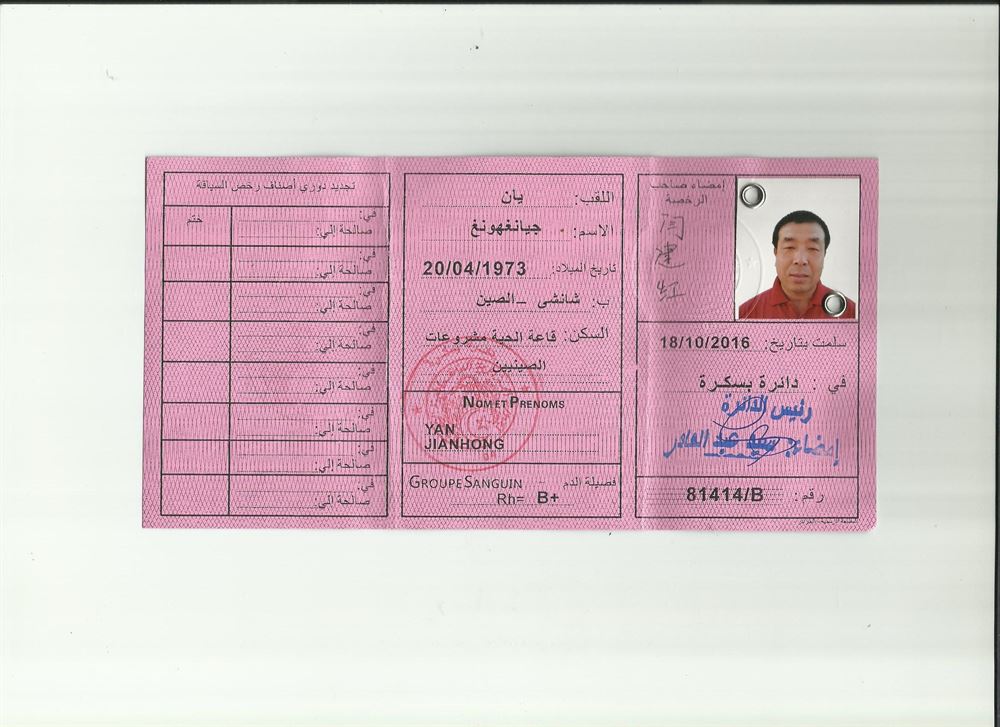 إمضاء صاحب
الرخصة
闫
建
红
سلمت بتاريخ: 18/10/2016
في : دائرة بسكرة
رئيس الدائرة
إمضاء: سيد عبد القادر
رقم : 81414/B
اللقب: يان
الاسم: جيانغهونغ
تاريخ الميلاد: 20/04/1973
ب: شانشي - الصين
السكن: قاعة الحية مشروعات
الصينيين
NOM ET PRENOMS
YAN
JIANHONG
GROUPE SANGUIN - فصيلة الدم
Rh= B+
تجديد دوري أصناف رخص السياقة
ختم
في:
صالحة إلى:
في:
صالحة إلى:
في:
صالحة إلى:
في:
صالحة إلى:
في:
صالحة إلى:
في:
صالحة إلى:
في:
صالحة إلى:
في:
صالحة إلى: